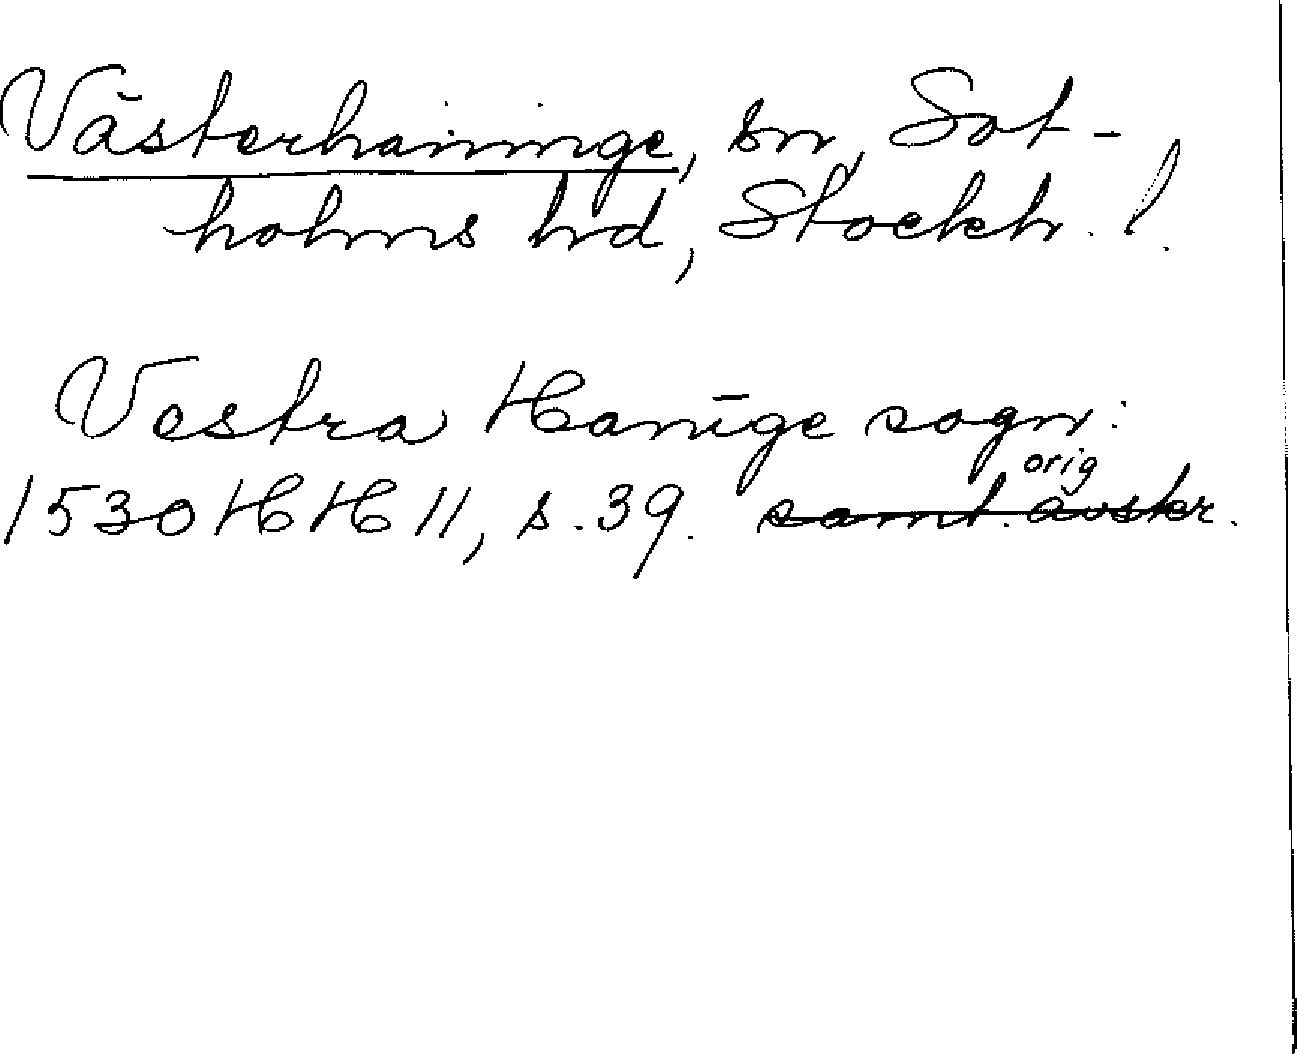 Västerhaninge, sn, Sot-
holms hd, Stockh. l.
Vestra Hanīge sogn:
orig
1530 HH 11, s. 39. samt. avskr.